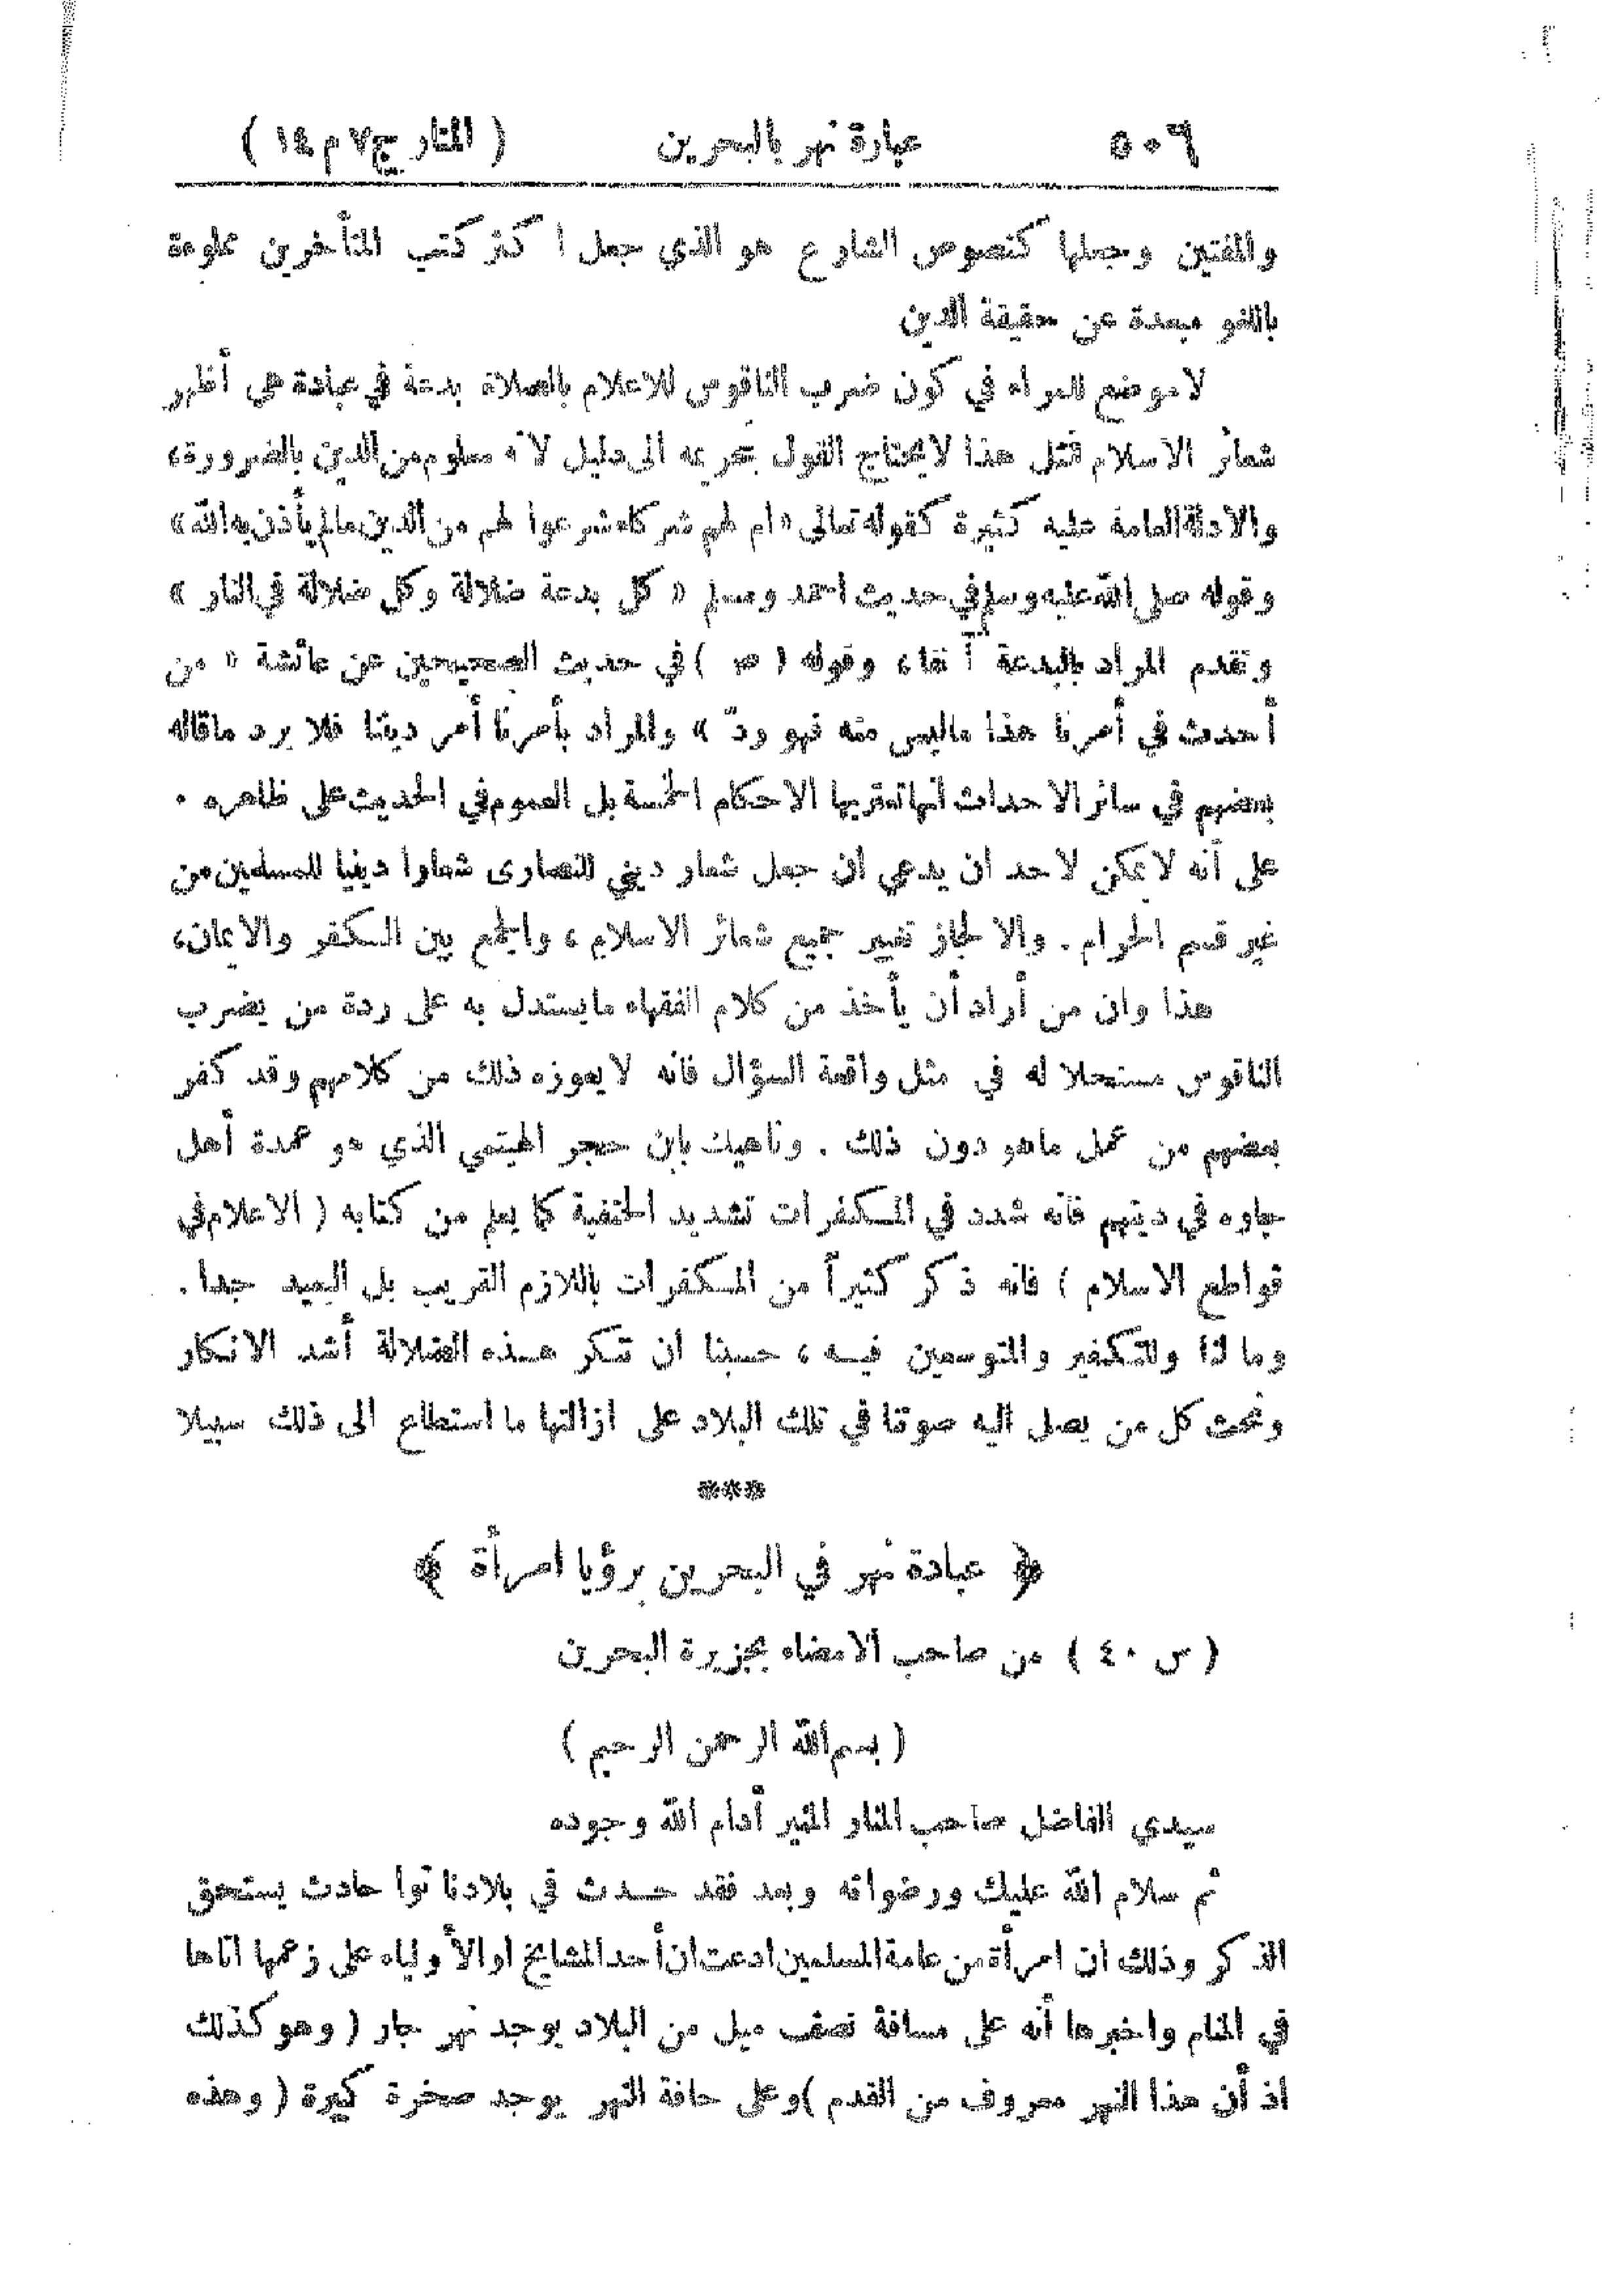 ٥٠٦ عبادة نهر بالبحرين ( المنار ج٧ م١٤ )
والمفتين وجعلها كنصوص الشارع هو الذي جعل اكثر كتب المتأخرين مملوءة
باللغو مبعدة عن حقيقة الدين
لاموضع للمراء في كون ضرب الناقوس للاعلام بالصلاة بدعة في عبادة هي أظهر
شعائر الاسلام فمثل هذا لا يحتاج القول بتحريمه الى دليل لانه معلوم من الدين بالضرورة،
والادلة العامة عليه كثيرة كقوله تعالى «ام لهم شركاء شرعوا لهم من الدين مالم يأذن به الله»
وقوله صلى الله عليه وسلم في حديث احمد ومسلم « كل بدعة ضلالة وكل ضلالة في النار »
وتقدم المراد بالبدعة آنفا، وقوله ( ص ) في حديث الصحيحين عن عائشة « من
أحدث في أمرنا هذا ماليس منه فهو ردّ » والمراد بأمرنا أمر ديننا فلا يرد ماقاله
بعضهم في سائر الاحداث انها تعتريها الاحكام الخمسة بل العموم في الحديث على ظاهره .
على أنه لا يمكن لاحد ان يدعي ان جعل شعار ديني للنصارى شعارا دينيا للمسلمين من
غير قسم الحرام . والا لجاز تغيير جميع شعائر الاسلام ، والجمع بين الكفر والايمان،
هذا وان من أراد أن يأخذ من كلام الفقهاء مايستدل به على ردة من يضرب
الناقوس مستحلا له في مثل واقعة السؤال فانه لايعوزه ذلك من كلامهم وقد كفر
بعضهم من عمل ماهو دون ذلك . وناهيك بابن حجر الهيتمي الذي هو عمدة أهل
جاوه في دينهم فانه شدد في المكفرات تشديد الحنفية كما يعلم من كتابه ( الاعلام في
قواطع الاسلام ) فانه ذكر كثيراً من المكفرات باللازم القريب بل البعيد جدا .
وما لنا وللتكفير والمتوسعين فيه ، حسبنا ان ننكر هذه الضلالة أشد الانكار
ونحث كل من يصل اليه صوتنا في تلك البلاد على ازالتها ما استطاع الى ذلك سبيلا
***
﴿ عبادة نهر في البحرين برؤيا امرأة ﴾
( س ٤٠ ) من صاحب الامضاء بجزيرة البحرين
( بسم الله الرحمن الرحيم )
سيدي الفاضل صاحب المنار المنير أدام الله وجوده
ثم سلام الله عليك ورضوانه وبعد فقد حدث في بلادنا توا حادث يستحق
الذكر وذلك ان امرأة من عامة المسلمين ادعت ان أحد المشايخ او الأولياء على زعمها اتاها
في المنام واخبرها أنه على مسافة نصف ميل من البلاد يوجد نهر جار ( وهو كذلك
اذ أن هذا النهر معروف من القدم ) وعلى حافة النهر يوجد صخرة كبيرة ( وهذه